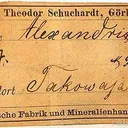 Theodor Schuchardt, Görl
Alexandri
ort. Takowaja
sche Fabrik und Mineralienhan